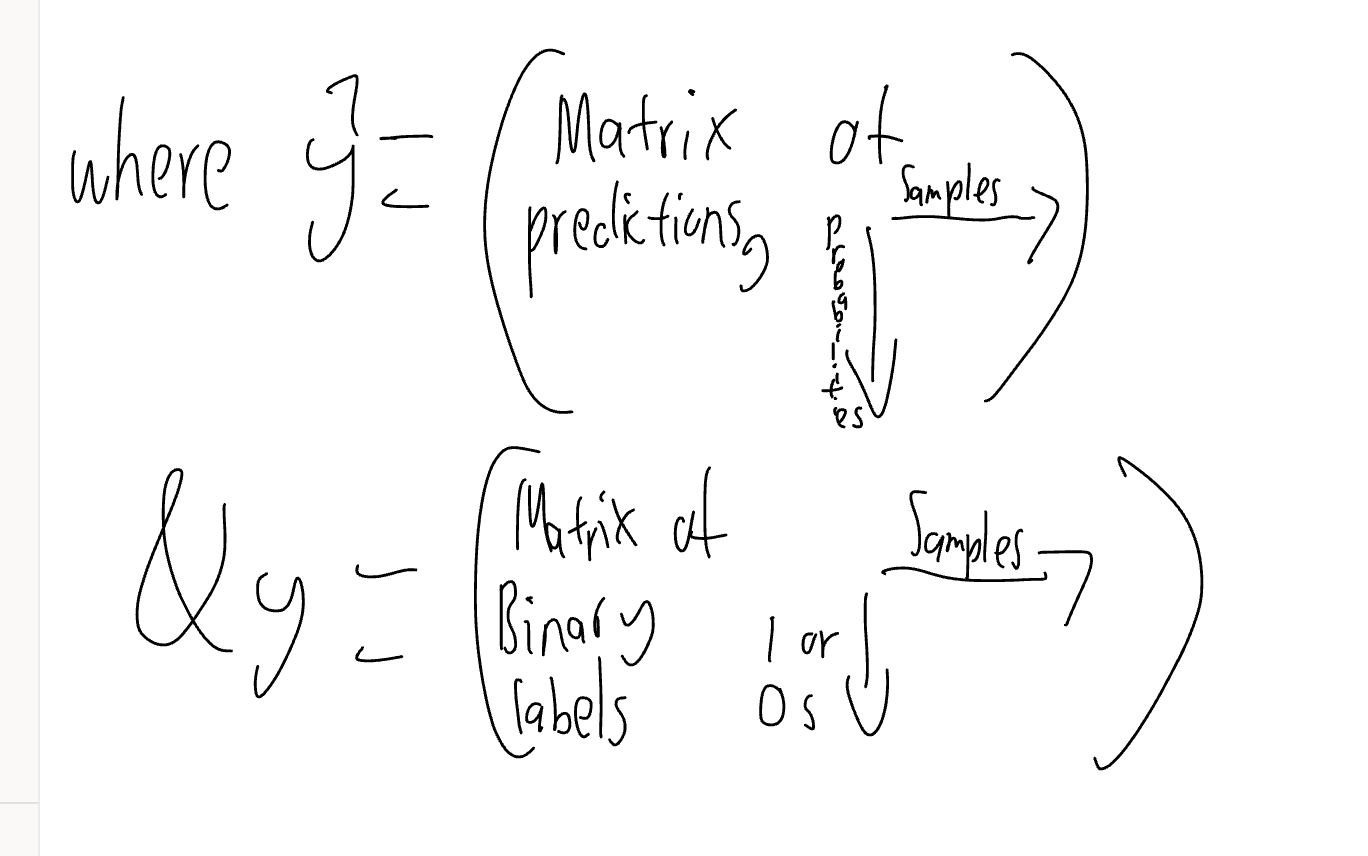 where ŷ = (Matrix of
predictions,
Samples →
Probabilites ↓ )
& y = (Matrix of
Binary
labels
Samples →
1 or
0s ↓ )